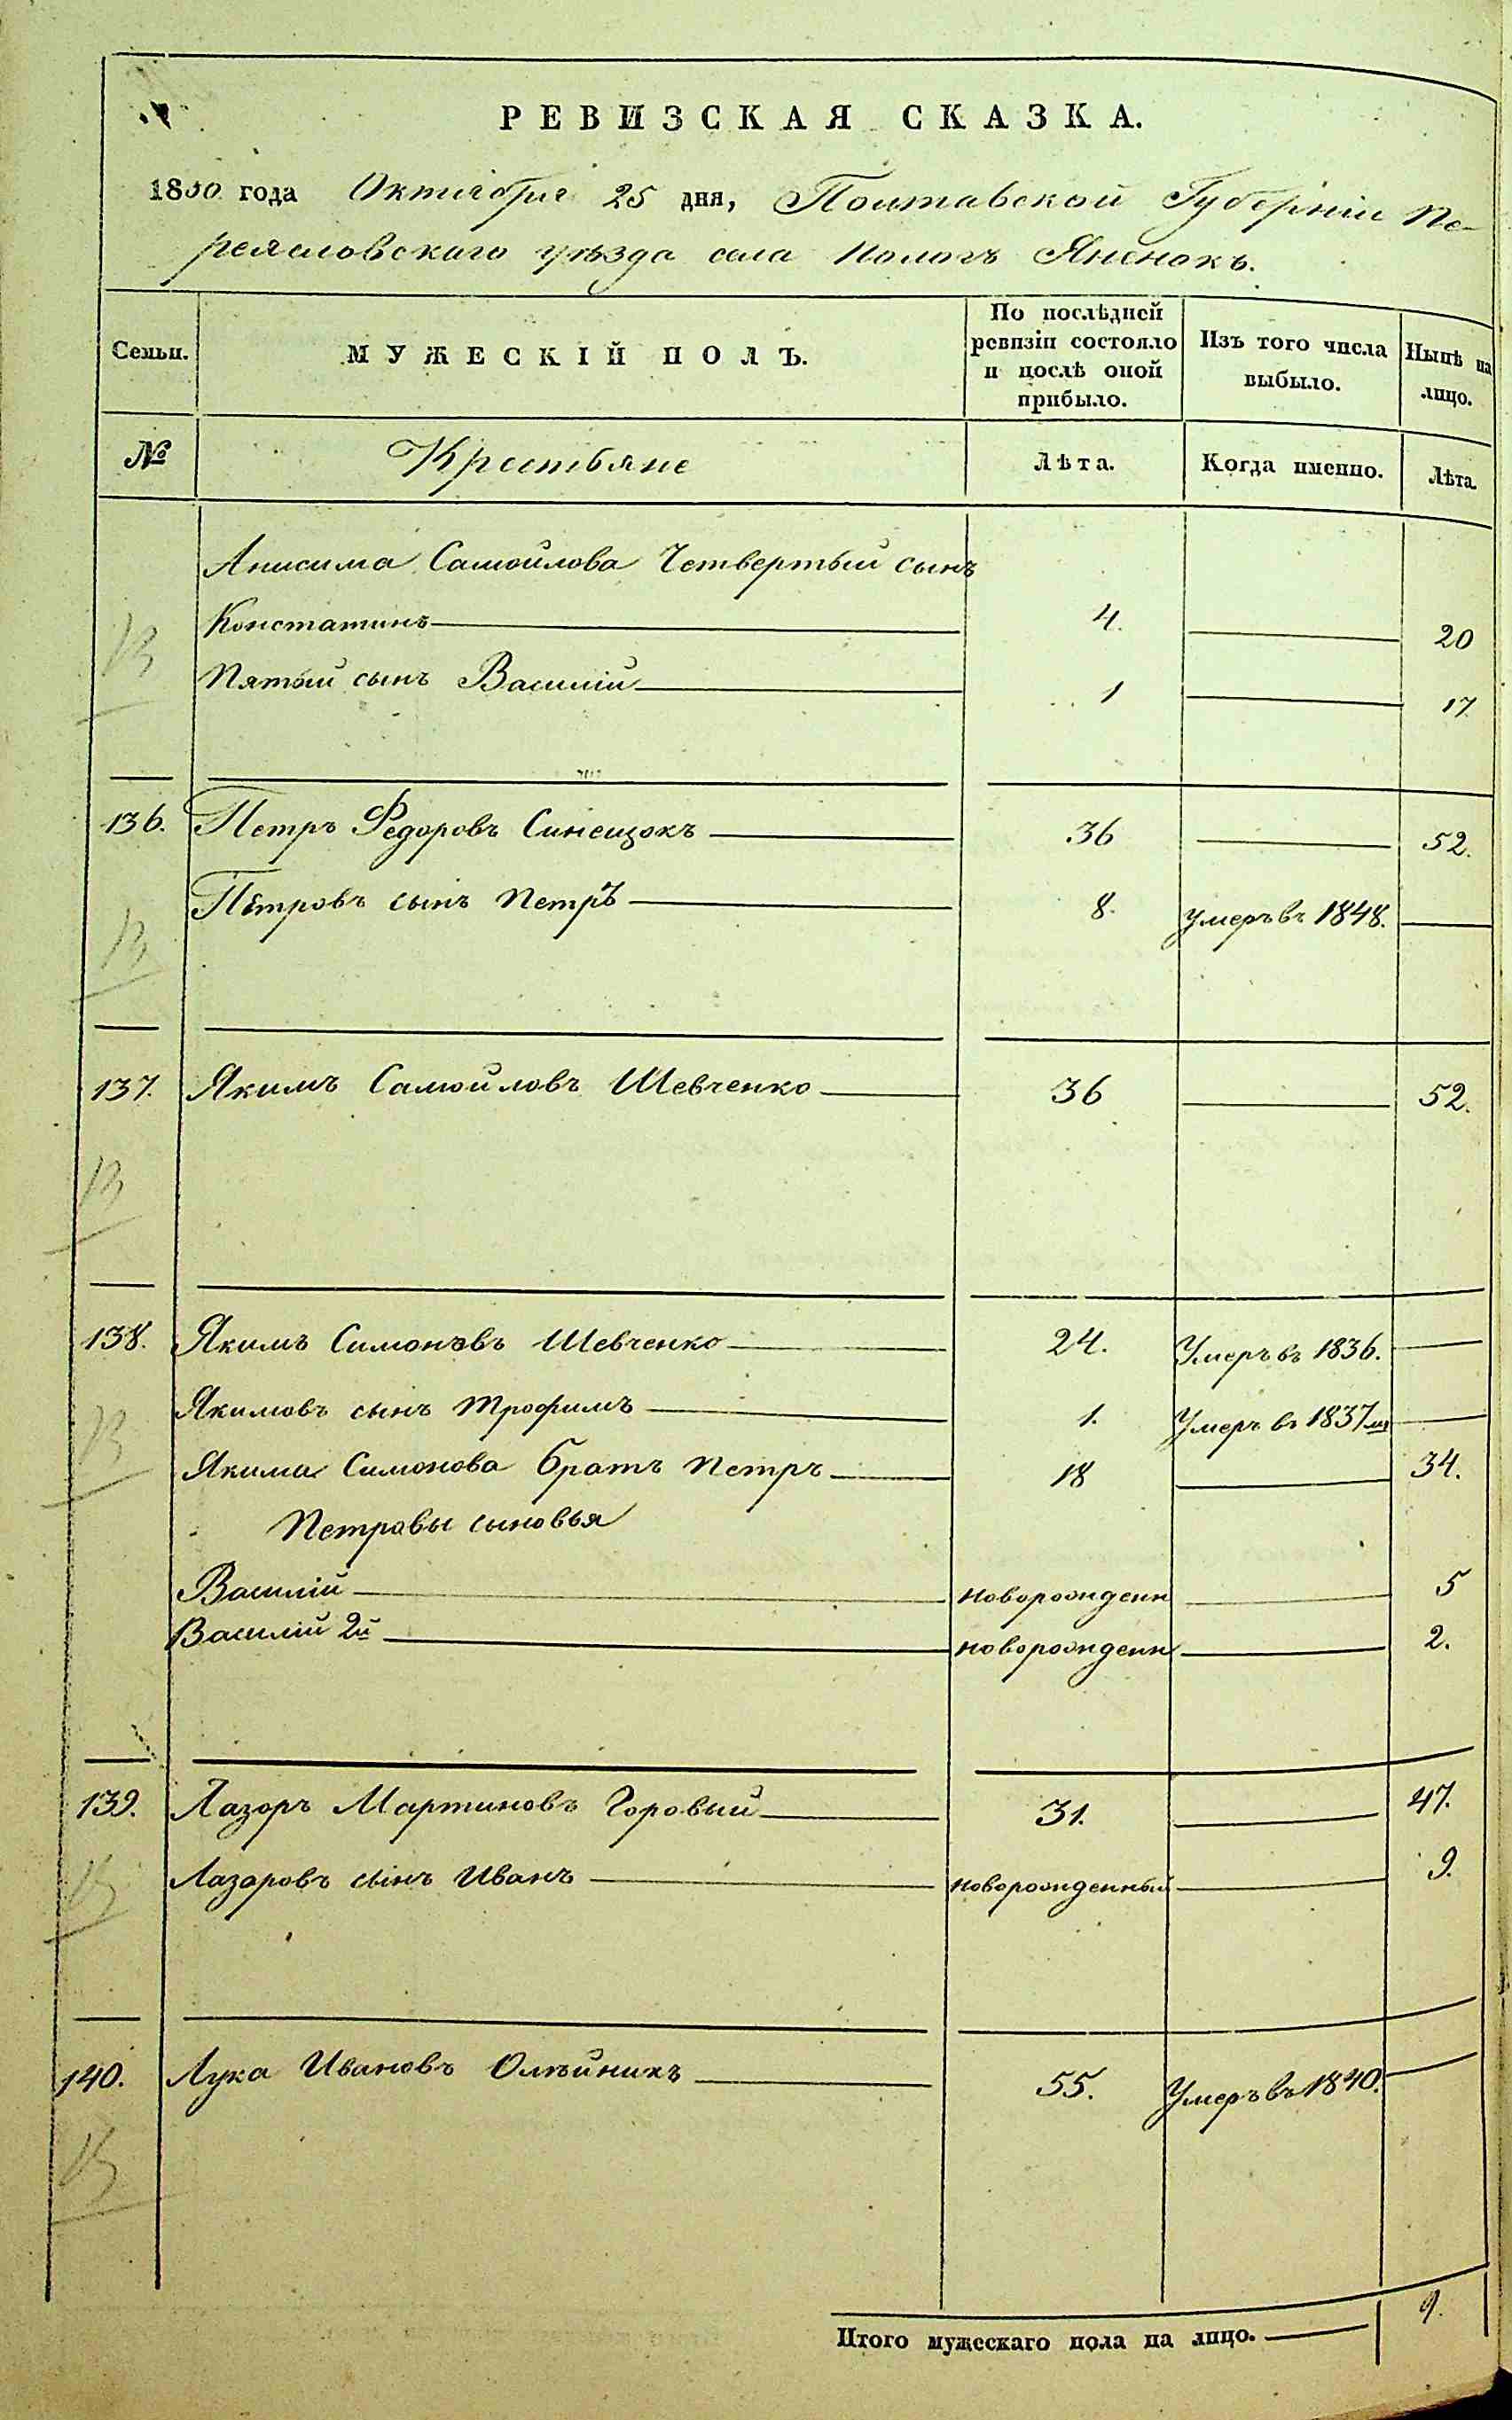 РЕВИЗСКАЯ СКАЗКА.
1850 года Октября 25 дня, Полтавской Губерніи Пе-
реяславскаго уѣзда села Пологъ Яненокъ.
Семьи. МУЖЕСКІЙ ПОЛЪ. По послѣдней ревизіи состояло и послѣ оной прибыло. Изъ того числа выбыло. Нынѣ на лицо.
№ Крестьяне Лѣта. Когда именно. Лѣта.
Анисима Самойлова Четвертый сынъ
Констатинъ 4. 20
Пятый сынъ Василій 1 17
136. Петръ Федоровъ 36 52.
Петровъ сынъ Петръ 8. умеръ въ 1848.
137. Якимъ Самойловъ Шевченко 36 52.
138. Якимъ Симоновъ Шевченко 24. Умеръ въ 1836.
Якимовъ сынъ Трофимъ 1. Умеръ въ 1837
Якима Симонова братъ Петръ 18 34.
Петровы сыновья
Василій новорожденн 5
Василій 2й новорожденн 2.
139. Лазоръ Мартиновъ Горовый 31. 47.
Лазоровъ сынъ Иванъ новорожденный 9.
140. Лука Ивановъ Олѣйникъ 55. Умеръ въ 1840.
Итого мужескаго пола на лицо. 9.